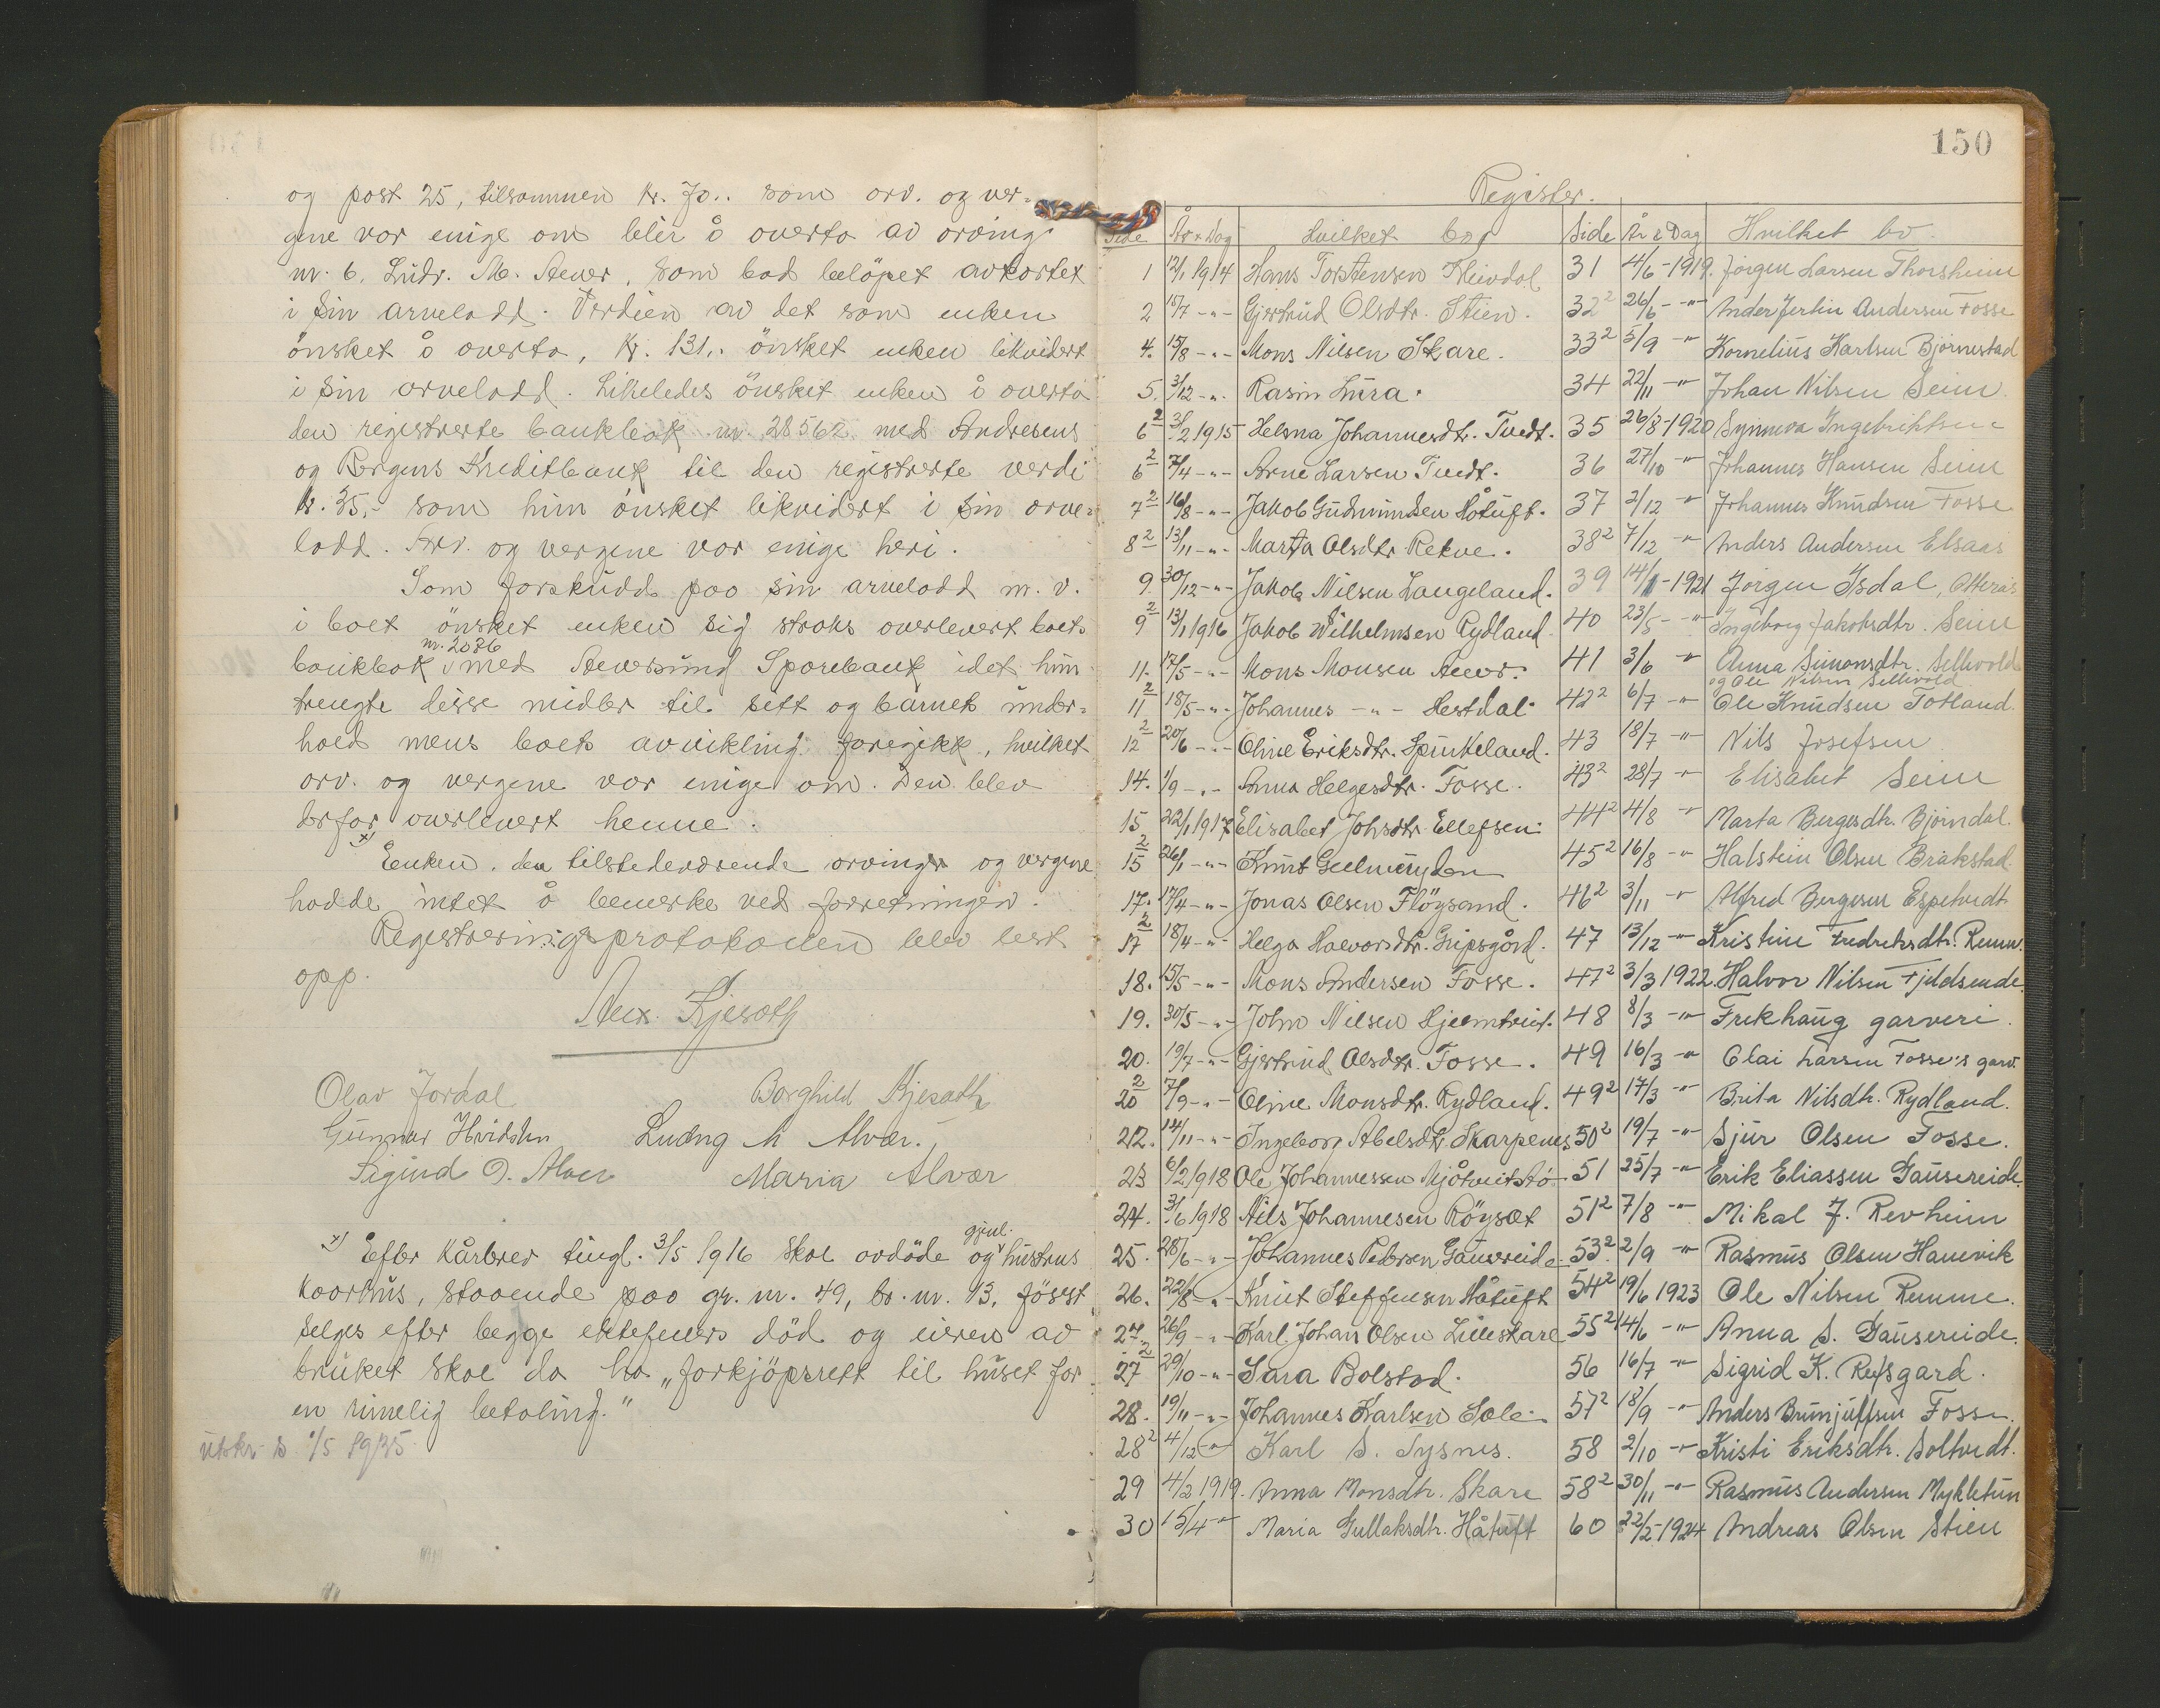 og post 25, tilsammen kr. 70.. som arv. og ver-
gene var enige om blir å overta av arving
nr. 6, Ludv. M. Alver, som bad beløpet avkortet
i sin arvelodd. Verdien av det som enken
ønsket å overta, kr. 131,. ønsket enken likvidert
i sin arvelodd. Likeledes ønsket enken å overta
den registrerte bankbok nr. 28562 med Andresens
og Bergens Kreditbank til den registrerte verdi
kr. 35,- som hun ønsket likvidert i sin arve-
lodd. Arv. og vergene var enige heri.
Som forskudd paa sin arvelodd m. v.
i boet ønsket enken sig straks overlevert boets
bankbok nr. 2086 med Alversund Sparebank idet hun
trengte disse midler til sitt og barnets under-
hold mens boets avvikling foregikk, hvilket
arv. og vergene var enige om. Den blev
derfor overlevert henne.
x) Enken, de tilstedeværende arvinger og vergene
hadde intet å bemerke ved forretningen.
Registreringsprotokollen blev lest
opp.
Alex. Kjesoth
Olav Jordal Borghild Kjesath
Gunnar Hvidsten Ludvig M Alvær.
Sigurd O. Alver Maria Alvær
x) Efter kårbrev tingl. 3/5 1916 skal avdøde og gjenl. hustrus
kaarhus, staaende paa gr. nr. 49, br. nr. 13, føsest
selges efter begge ektefellers død og eieren av
bruket skal da ha "forkjøpsrett til huset for
en rimelig betaling."
utskr. d. 1/5 1935.
150
Register.
Side År & Dag Hvilket bo Side År & Dag Hvilket bo
1 12/1 1914 Hans Torstensen Kleivdal 31 4/6-1919. Jørgen Larsen Thorsheim
2 15/7 -"- Gjertrud Olsdtr. Stien. 32² 26/6 -"- Ander Jertin Andersen Fosse
4. 15/8 -"- Mons Nilsen Skare. 33² 5/9 -"- Kornelius Karlsen Bjørnestad
5. 3/12 -"- Rasin Lura. 34 22/11 -"- Johan Nilsen Seim
6² 3/2 1915 Helena Johannesdtr. Tvedt. 35 26/8-1920 Synneva Ingebriktsen
6² 7/4 -"- Arne Larsen Tvedt. 36 27/10 -"- Johannes Hansen Seim
7² 16/8 -"- Jakob Gudmundsen Håtuft. 37 2/12 -"- Johannes Knudsen Fosse
8² 13/11 -"- Marta Olsdtr Rekve. 38² 7/12 -"- Anders Andersen Elsaas
9. 30/12 -"- Jakob Nilsen Langeland. 39 14/1-1921 Jørgen Isdal, Otterås
9² 13/1 1916 Jakob Wilhelmsen Rydland 40 23/5 -"- Ingeborg Jakobsdtr. Seim
11. 17/5 -"- Mons Monsen Alver. 41 3/6 -"- Anna Simonsdtr. Sellevold
og Ole Nilsen Sellevold
11² 18/5 -"- Johannes -"- Hestdal. 42² 6/7 -"- Ole Knudsen Totland.
12² 20/6 -"- Oline Eriksdtr. Spurkeland. 43 18/7 -"- Nils Josefsen
14. 1/9 -"- Anna Helgesdtr. Fosse. 43² 28/7 -"- Elisabet Seim
15 22/1 1917 Elisabet Johsdtr Ellefsen. 44² 4/8 -"- Marta Bergesdtr. Bjørndal.
15² 26/1 -"- Knut Geelmuyden 45² 16/8 -"- Halstein Olsen Brakstad
17. 17/4 -"- Jonas Olsen Fløysand. 46² 3/11 -"- Alfred Bergesen Espetvedt
17² 18/4 -"- Helga Halvorsdtr. Gripsgård. 47 13/12 -"- Kristine Fredriksdtr. Remm.
18. 15/5 -"- Mons Andersen Fosse. 47² 3/3 1922. Halvor Nilsen Fjeldsende.
19. 30/5 -"- John Nilsen Hjelmtveit. 48 8/3 -"- Frekhaug garveri.
20. 19/7 -"- Gjertrud Olsdtr. Fosse. 49 16/3 -"- Olai Larsen Fosse's garv.
20² 7/9 -"- Oline Monsdtr. Rydland. 49² 17/3 -"- Brita Nilsdtr. Rydland.
22. 14/11 -"- Ingeborg Abelsdtr Skarpenes 50² 19/7 -"- Sjur Olsen Fosse.
23 6/2 1918 Ole Johannessen Mjåtveitstø 51 25/7 -"- Erik Eliassen Gausereide.
24. 3/6 1918 Nils Johannesen Røyset 51² 7/8 -"- Mikal J. Revheim
25. 28/6 -"- Johannes Pedersen Gausereide 53² 2/9 -"- Rasmus Olsen Hanevik
26. 22/8 -"- Knut Steffensen Håtuft 54² 19/6 1923 Ole Nilsen Remme.
27. 26/9 -"- Karl Johan Olsen Lilleskare 55² 14/6 -"- Anna S. Gausereide.
27² 29/10 -"- Sara Bolstad. 56 16/7 -"- Sigrid K. Refsgard.
28. 19/11 -"- Johannes Karlsen Sole. 57² 18/9 -"- Anders Brunjulfsen Fosse.
28² 4/12 -"- Karl S. Tysnes. 58 2/10 -"- Kristi Eriksdtr. Soltvedt.
29 4/2 1919. Anna Monsdtr. Skare 58² 30/11 -"- Rasmus Andersen Mykletun
30 15/4 -"- Maria Gullaksdtr. Håtuft 60 22/2-1924 Andreas Olsen Stien